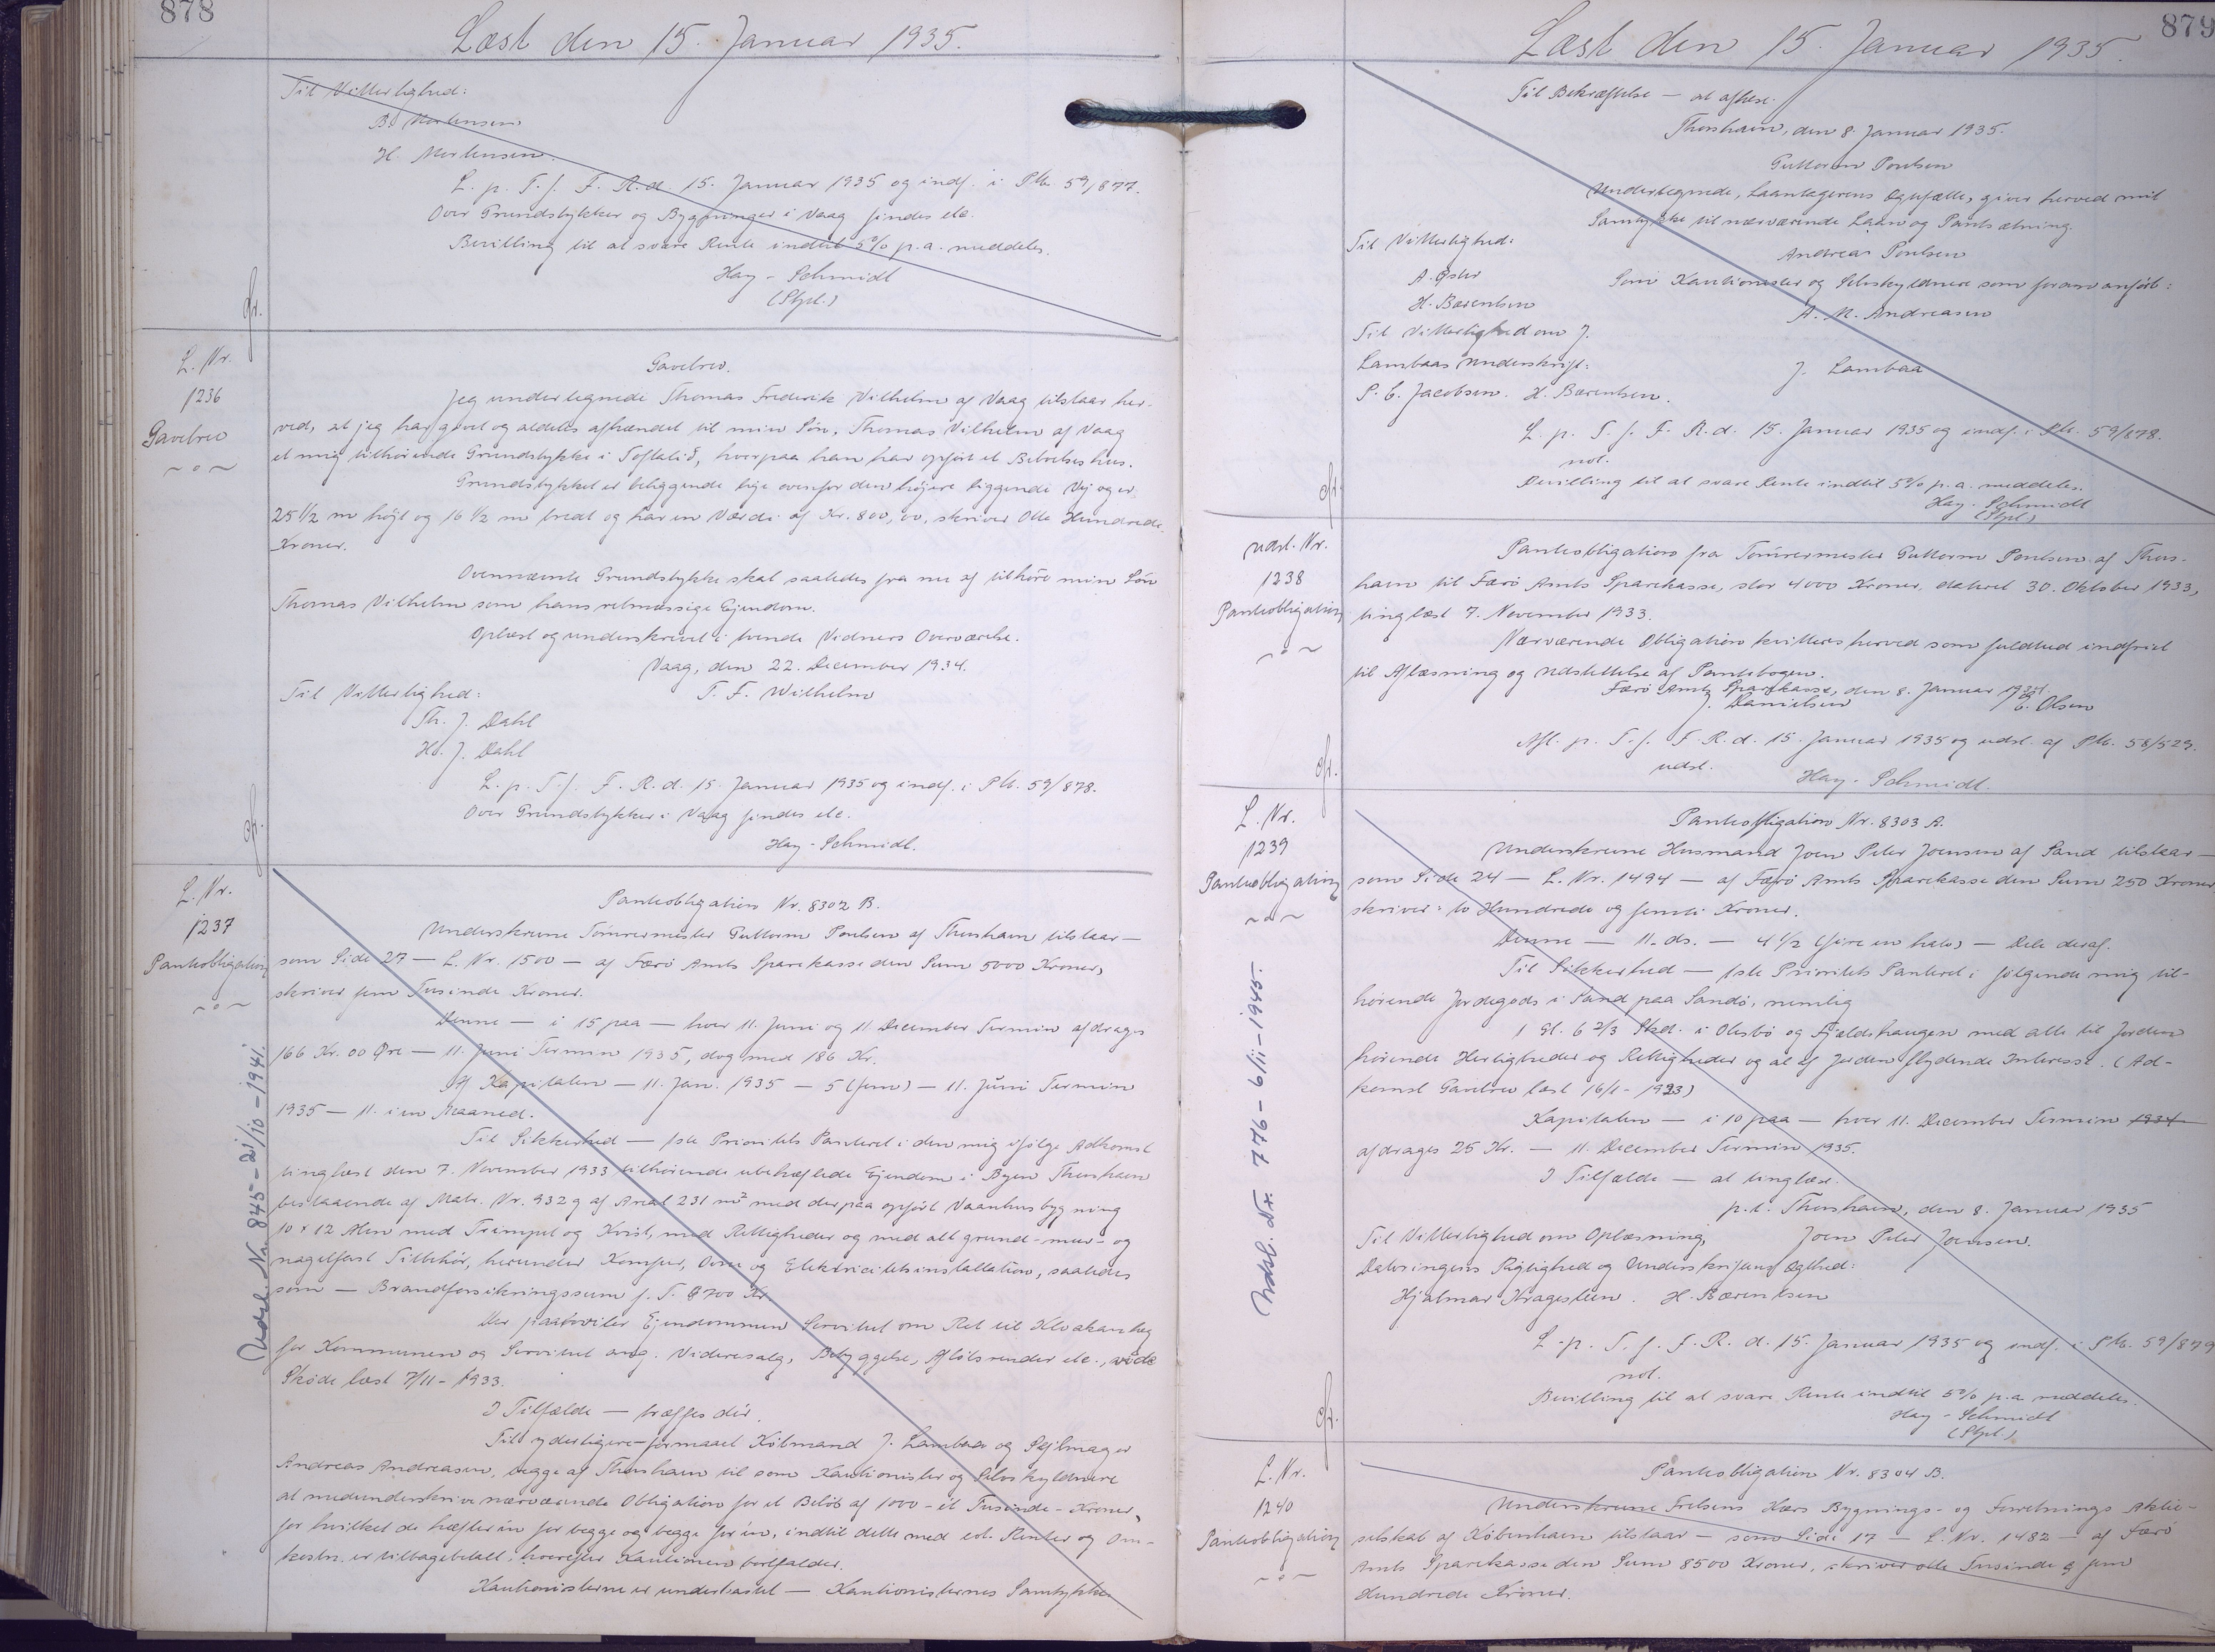 878
Læst den 15. Januar 1935.
Til Vitterlighed:
B. Mortensen
H. Mortensen.
L. p. T. f. F. R. d. 15. Januar 1935 og indf. i Ptb. 59/877.
Over Grundstykker og Bygninger i Vaag findes ele.
Bevilling til at svare Rente indtil 5% p.a. meddeles.
Hay-Schmidt
(Stpl.)
L. Nr.
1236
Gavebrev
Gavebrev.
Jeg undertegnede Thomas Frederik Vilhelm af Vaag tilstaar her-
ved, at jeg har givet og aldeles afhændet til min Søn, Thomas Vilhelm af Vaag
et mig tilhørende Grundstykke i Toftalið, hvorpaa han har opført et Beboelseshus.
Grundstykket er beliggende lige ovenfor den højere liggende Vej og er
25 1/2 m højt og 16 1/2 m bredt og har en Værdi af Kr. 800,00, skriver Otte Hundrede
Kroner.
Ovennævnte Grundstykke skal saaledes fra nu af tilhøre min Søn
Thomas Vilhelm som hans retmæssige Ejendom.
Oplæst og underskrevet i tvende Vidners Overværelse.
Vaag, den 22. December 1934.
Til Vitterlighed: T. F. Wilhelm
Th. J. Dahl
H. J. Dahl
L. p. T. f. F. R. d. 15. Januar 1935 og indf. i Ptb. 59/878.
Over Grundstykker i Vaag findes ele.
Hay-Schmidt.
L. Nr.
1237
Panteobligation
Udsl. Nr. 845 - 21/10 - 1941.
Panteobligation Nr. 8302 B.
Underskrevne Tømrermester Guttorm Poulsen af Thorshavn tilstaar —
som Side 27 — L. Nr. 1500 — af Færø Amts Sparekasse den Sum 5000 Kroner,
skriver fem Tusinde Kroner.
Denne — i 15 paa — hver 11. Juni og 11 December Termin afdrages
166 Kr. 00 Øre — 11. Juni Termin 1935, dog med 186 Kr.
Af Kapitalen — 11. Jan. 1935 — 5 (fem) — 11. Juni Termin
1935 — 11. i en Maaned.
Til Sikkerhed — 1ste Prioritets Panteret i den mig ifølge Adkomst
tinglæst den 7. November 1933 tilhørende ubehæftede Ejendom i Byen Thorshavn
bestaaende af Matr. Nr. 932 g af Areal 231 m² med derpaa opført Vaanhusbygning
10 × 12 Alen med Trempel og Kvist, med Rettigheder og med alt grund- mur- og
nagelfast Tilbehør, herunder Komfur, Ovne og Elektricitetsinstallation, saaledes
som — Brandforsikringssum f. T. 8700 Kr.
Der paahviler Ejendommen Servitut om Ret til Kloakanlæg
for Kommunen og Servitut ang. Videresalg, Bebyggelse, Afløbsrender etc., vide
Skøde læst 7/11 - 1933.
I Tilfælde — træffes dér.
Til yderligere — formaaet Købmand J. Lambaa og Sejlmager
Andreas Andreasen, begge af Thorshavn til som Kautionister og Selvskyldnere
at medunderskrive nærværende Obligation for et Beløb af 1000 - ét Tusinde - Kroner,
for hvilket de hæfter én for begge og begge for én, indtil dette med evt. Renter og Om-
kostn. er tilbagebetalt; hvorefter Kautionen bortfalder.
Kautionisterne er underkastet — Kautionisternes Samtykke
879
Læst den 15. Januar 1935.
Til Bekræftelse — at aflæse.
Thorshavn, den 8. Januar 1935.
Guttorm Poulsen
Undertegnede, Laantagerens Ægtefælle, giver herved mit
Samtykke til nærværende Laan og Pantsætning.
Til Vitterlighed: Andrea Poulsen
A. Øster Som Kautionister og Selvskyldnere som foran anført:
H. Bærentsen A. M. Andreasen
Til Vitterlighed om J.
Lambaas Underskrift: J. Lambaa
P. C. Jacobsen. H. Bærentsen.
L. p. T. f. F. R. d. 15. Januar 1935 og indf. i Ptb. 59/878.
not.
Bevilling til at svare Rente indtil 5% p.a. meddeles.
Hay-Schmidt
(Stpl.)
Udsl. Nr.
1238
Panteobligation
Panteobligation fra Tømrermester Guttorm Poulsen af Thors-
havn til Færø Amts Sparekasse, stor 4000 Kroner, dateret 30. Oktober 1933,
tinglæst 7. November 1933.
Nærværende Obligation kvitteres herved som fuldtud indfriet
til Aflæsning og Udslettelse af Pantebogen.
Færø Amts Sparekasse, den 8. Januar 1935
J. Danielsen C. Olsen
Afl. p. T. f. F. R. d. 15. Januar 1935 og udsl. af Ptb. 58/529.
udsl.
Hay-Schmidt.
L. Nr.
1239
Panteobligation
Udsl. Nr. 776 - 6/11 - 1945.
Panteobligation Nr. 8303 A.
Underskrevne Husmand Joen Peter Joensen af Sand tilstaar —
som Side 24 — L. Nr. 1494 — af Færø Amts Sparekasse den Sum 250 Kroner
skriver: to Hundrede og femti Kroner.
Denne — 11. ds. — 4 1/2 (fire en halv) — Dele deraf.
Til Sikkerhed — 1ste Prioritets Panteret i følgende mig til-
hørende Jordegods i Sand paa Sandø, nemlig
1 Gl. 6 2/3 Skd. i Olesbø og Fjældshaugen med alle til Jorden
hørende Herligheder og Rettigheder og al af Jorden flydende Interesse. (Ad-
komst Gavebrev læst 16/1 - 1933)
Kapitalen — i 10 paa — hver 11. December Termin 1934
afdrages 25 Kr. — 11. December Termin 1935.
I Tilfælde — at tinglæse.
p.t. Thorshavn, den 8. Januar 1935
Til Vitterlighed om Oplæsning, Joen Peter Joensen.
Dateringens Rigtighed og Underskriftens Ægthed:
Hjalmar Kragesteen. H. Bærentsen
L. p. T. f. F. R. d. 15. Januar 1935 og indf. i Ptb. 59/879
not.
Bevilling til at svare Rente indtil 5% p.a. meddeles.
Hay-Schmidt
(Stpl.)
L. Nr.
1240
Panteobligation
Panteobligation Nr. 8304 B.
Underskrevne Frelsens Hærs Bygnings- og Forretnings Aktie-
selskab af København tilstaar — som Side 17 — L. Nr. 1482 — af Færø
Amts Sparekasse den Sum 8500 Kroner, skriver otte Tusinde og fem
Hundrede Kroner.